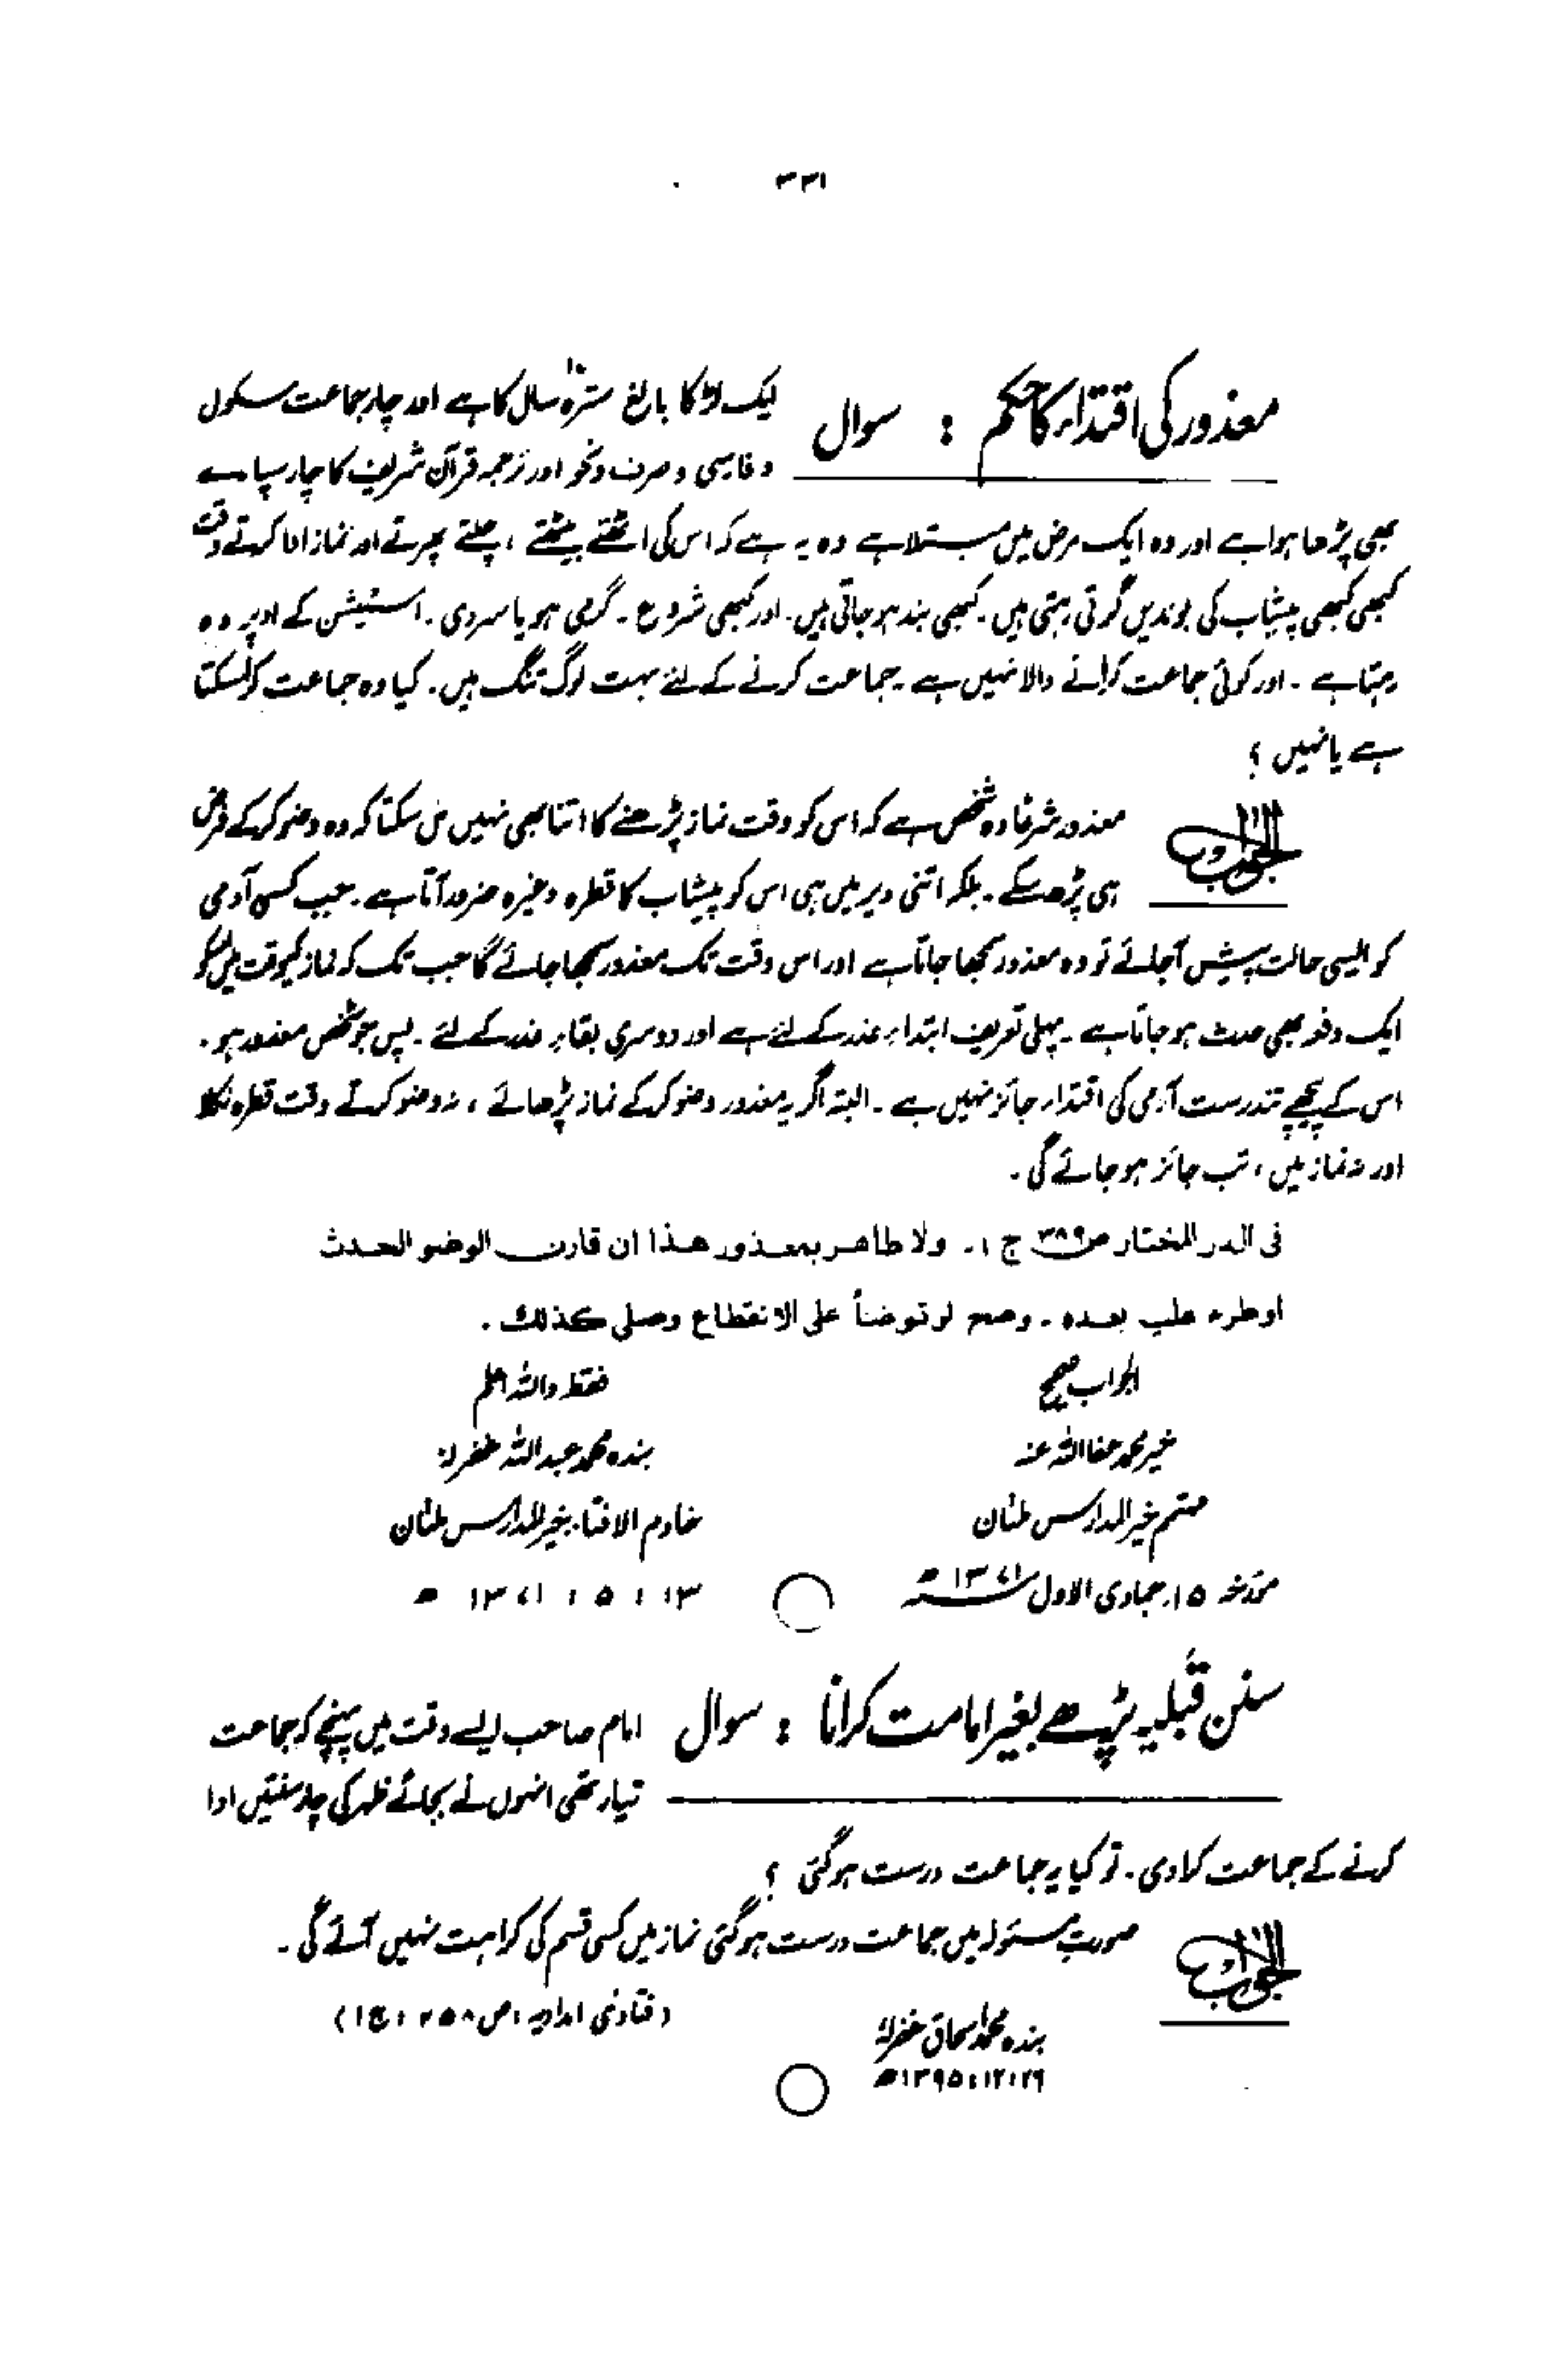 ۳۳۱
معذور کی اقتداء کا حکم : سوال
ایک لڑکا بالغ سترہ ۱۷ سال کا ہے اور چار جماعت سکول
و فارسی و صرف و نحو اور ترجمہ قرآن شریف کا چار سپارے
بھی پڑھا ہوا ہے اور وہ ایک مرض میں مبتلا ہے وہ یہ ہے کہ اس کی اٹھتے بیٹھتے ، چلتے پھرتے اور نماز ادا کرتے وقت
کبھی کبھی پیشاب کی بوندیں گرتی رہتی ہیں ۔ کبھی بند ہو جاتی ہیں ۔ اور کبھی شروع ۔ گرمی ہو یا سردی ۔ اسٹیشن کے اوپر وہ
رہتا ہے ۔ اور کوئی جماعت کرانے والا نہیں ہے ۔ جماعت کرنے کے لئے بہت لوگ تنگ ہیں ۔ کیا وہ جماعت کرا سکتا
ہے یا نہیں ؟
الجواب
معذور شرعاً وہ شخص ہے کہ اس کو وقت نماز پڑھنے کا اتنا بھی نہیں مل سکتا کہ وہ وضو کر کے فرض
ہی پڑھ سکے ۔ بلکہ اتنی دیر میں ہی اس کو پیشاب کا قطرہ وغیرہ ضرور آتا ہے ۔ جب کسی آدمی
کو ایسی حالت پیش آجائے تو وہ معذور سمجھا جاتا ہے اور اس وقت تک معذور سمجھا جائے گا جب تک کہ نماز کے وقت میں اس کو
ایک دفعہ بھی حدث ہو جاتا ہے ۔ پہلی تعریف ابتداءِ عذر کے لئے ہے اور دوسری بقاءِ عذر کے لئے ۔ پس جو شخص معذور ہو ۔
اس کے پیچھے تندرست آدمی کی اقتداء جائز نہیں ہے ۔ البتہ اگر یہ معذور وضو کر کے نماز پڑھائے ، نہ وضو کرتے وقت قطرہ نکلا
اور نہ نماز میں ، تب جائز ہو جائے گی ۔
فی الدر المختار ص۳۸۹ ج ۱۔ ولا طاهر بمعذور هذا ان قارن الوضو الحدث
او طرء علیہ بعده ۔ وصح لو توضأ علی الانقطاع وصلی کذلك ۔
الجواب صحیح
خیر محمد عفا اللہ عنہ
مہتمم خیر المدارس ملتان
مورخہ ۱۵ جمادی الاول ۱۳۷۱ ھ
فقط واللہ اعلم
بندہ محمد عبد اللہ غفرلہ
خادم الافتاء خیر المدارس ملتان
۱۳ ؍ ۵ ؍ ۱۳۷۱ ھ
سنن قبلیہ پڑھے بغیر امامت کرانا : سوال
امام صاحب ایسے وقت میں پہنچے کہ جماعت
تیار تھی انہوں نے بجائے ظہر کی چار سنتیں ادا
کرنے کے جماعت کرا دی ۔ تو کیا یہ جماعت درست ہو گئی ؟
الجواب
صورت مسئولہ میں جماعت درست ہو گئی نماز میں کسی قسم کی کراہت نہیں آئے گی ۔
( فتاویٰ امدادیہ ؍ ص ۲۵۸ ؍ ج ۱ )
بندہ محمد اسحاق غفرلہ
۲۹ ؍ ۱۲ ؍ ۱۳۹۵ ھ